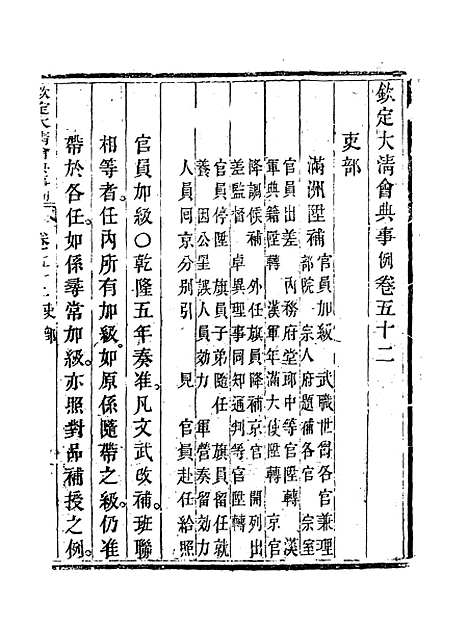 欽定大清會典事例卷五十二
吏部
滿洲陞補　官員加級　武職世爵各官兼理
部院　宗人府題補各官　宗室
官員出差　內務府堂郎中等官陞轉　漢
軍典籍陞轉　漢軍年滿大使陞轉　京官
降調候補　外任旗員降補京官　開列出
差監督　卓異理事同知通判等官陞轉
官員停陞　旗員子弟隨任　旗員留任就
養　因公罣誤人員効力　軍營奏留効力
人員回京分別引　見　官員赴任給照
官員加級〇乾隆五年奏准。凡文武改補。班聯
相等者。任內所有加級。如原係隨帶之級。仍准
帶於各任。如係尋常加級。亦照對品補授之例。
欽定大清會典事例　卷五十二　吏部